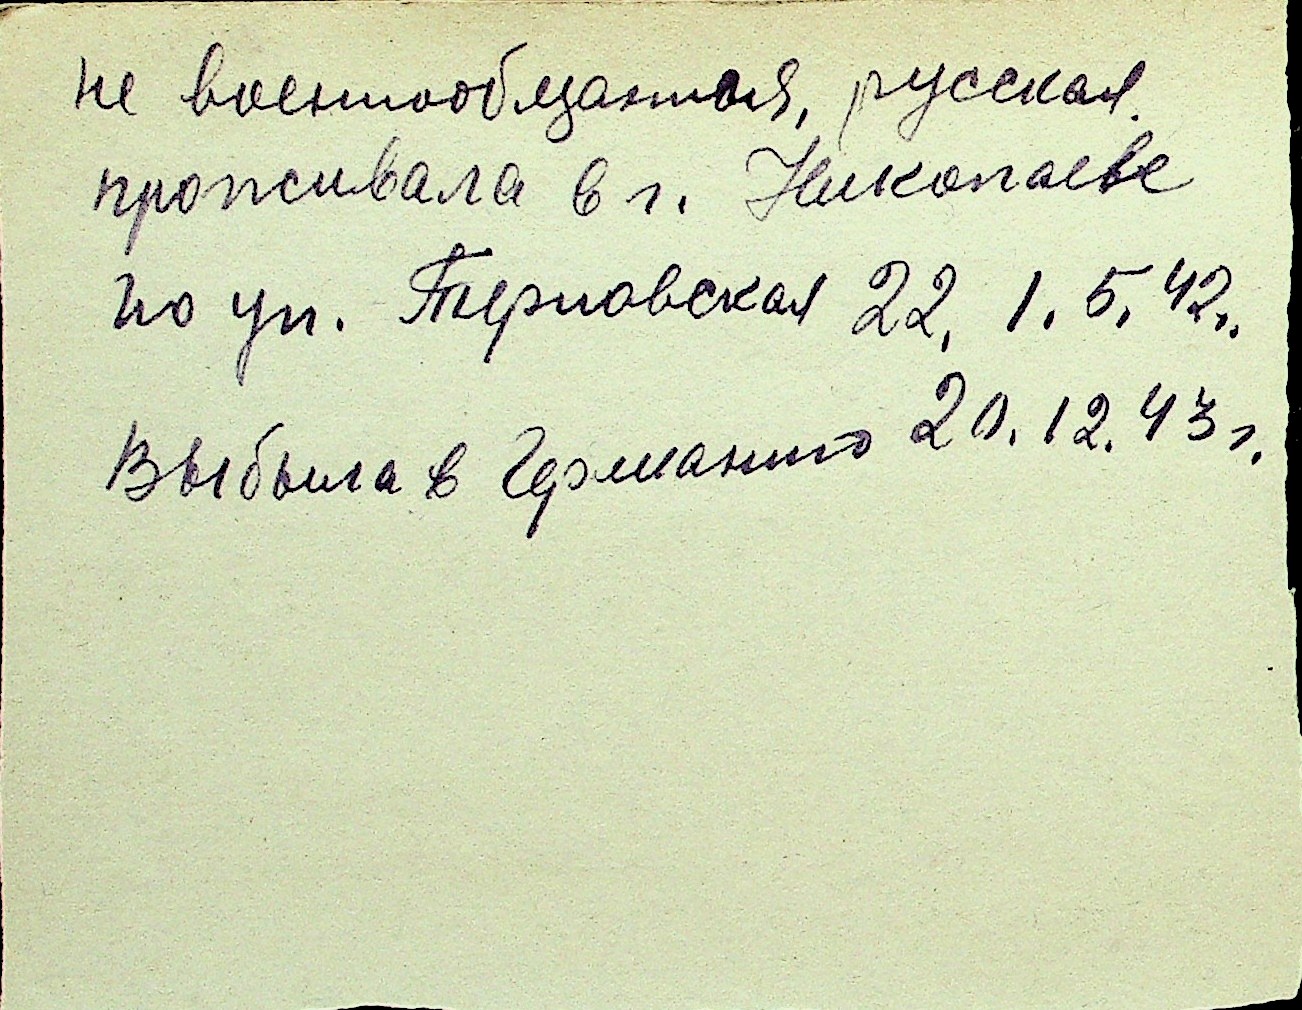 не военнообязанная, русская.
проживала в г. Николаеве
по ул. Терновская 22, 1.5.42г.
Выбыла в Германию 20.12.43г.